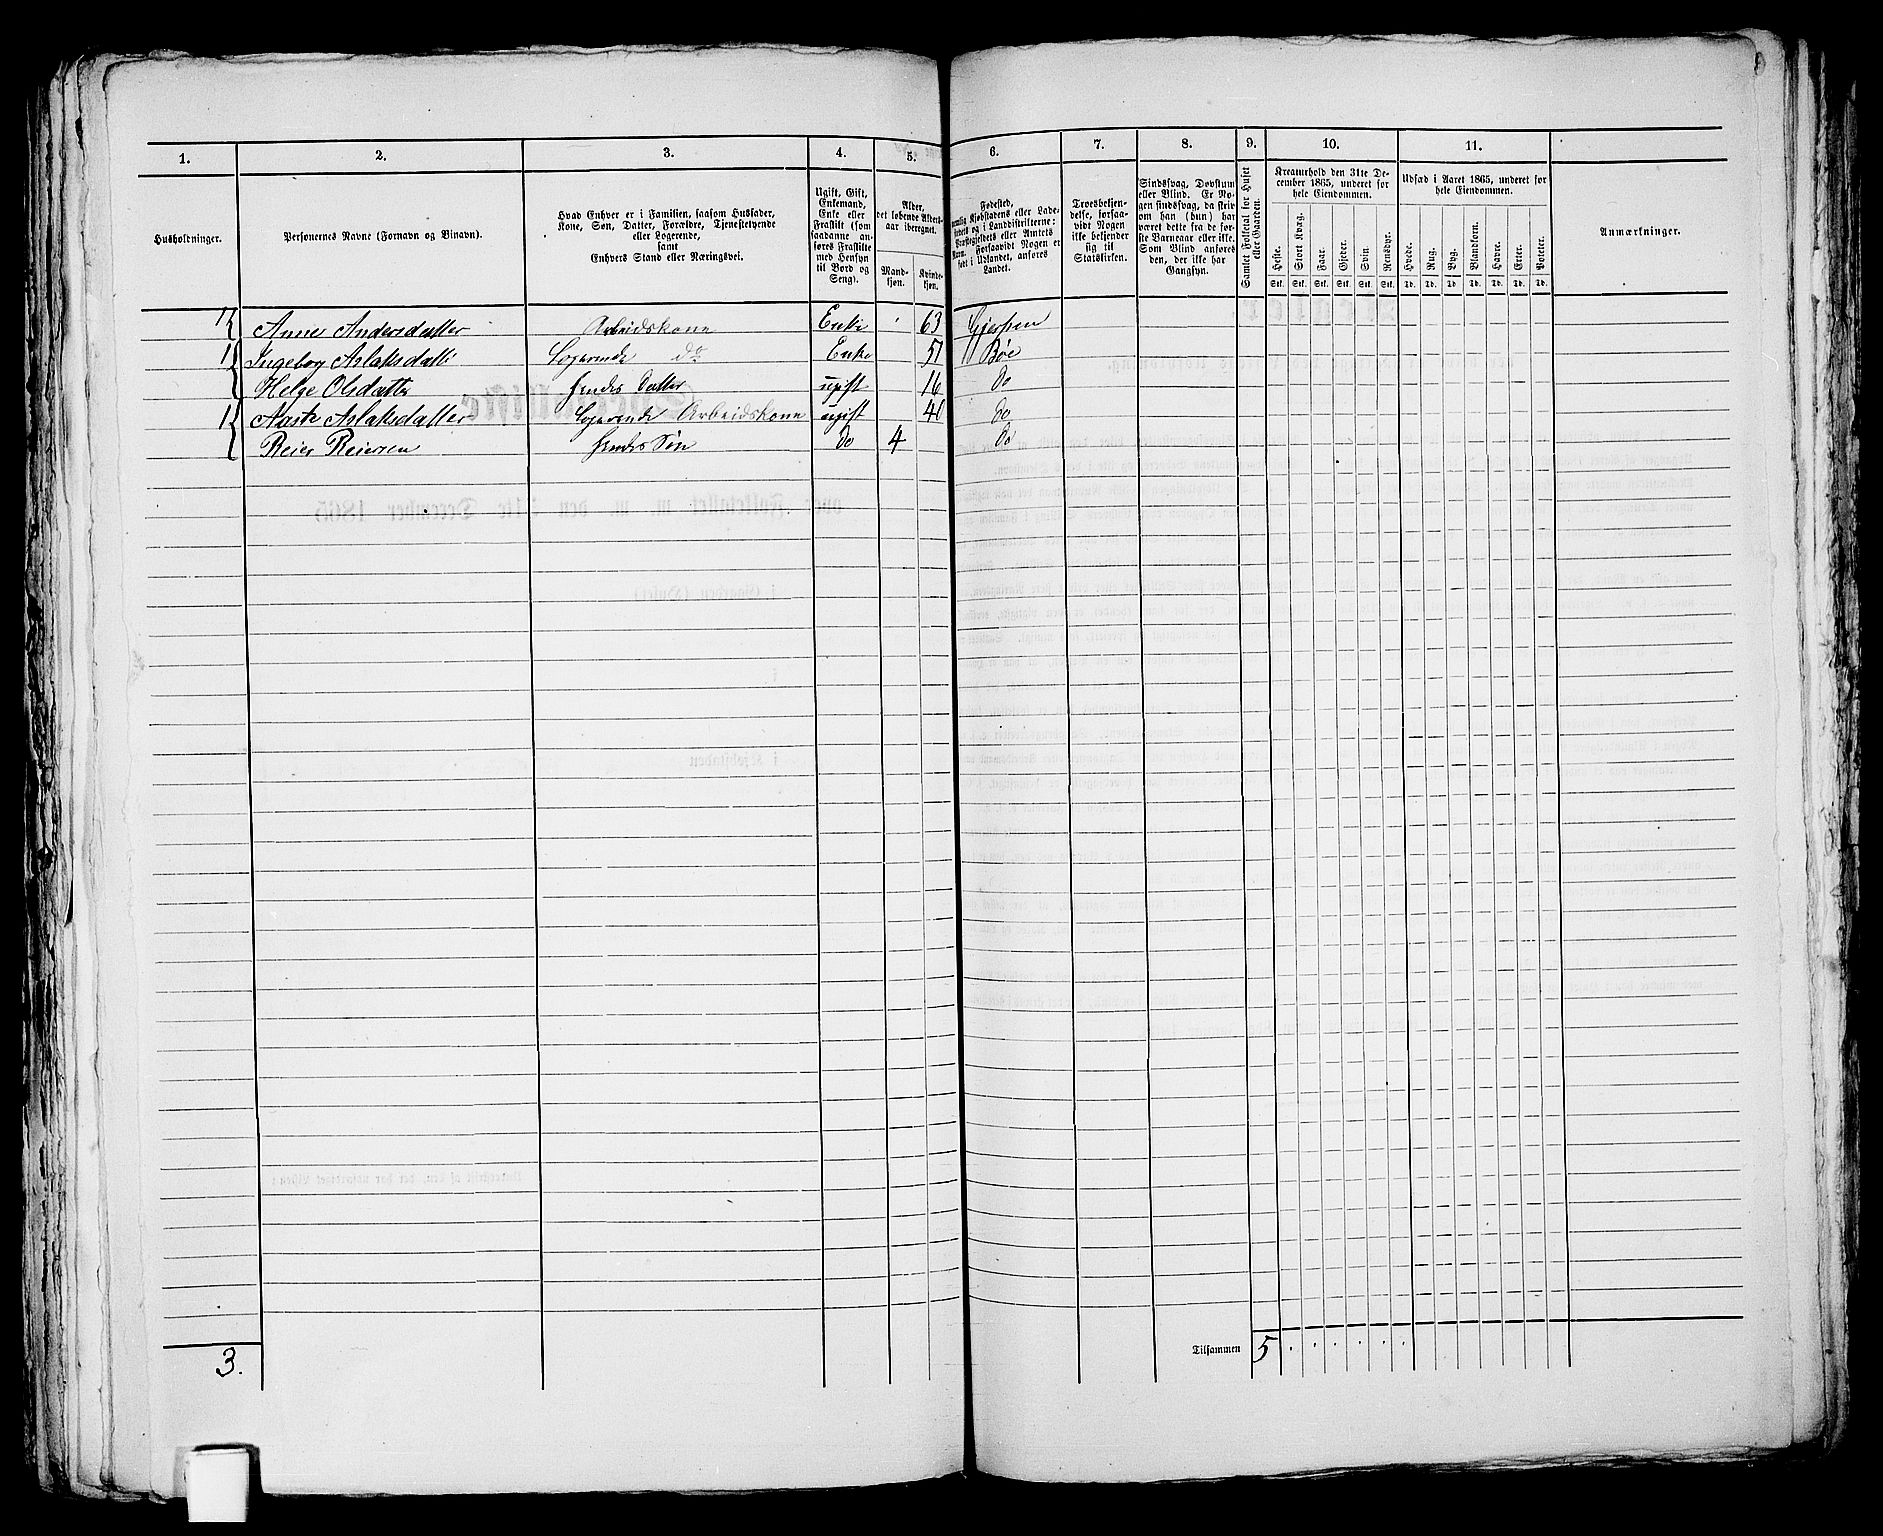 1. 2. 3. 4. 5. 6. 7. 8. 9. 10. 11.
Husholdninger.
Personernes Navne (Fornavn og Tilnavn).
Hvad Enhver er i Familien, saasom Husfader,
Kone, Søn, Datter, Forældre, Tjenestetyende
eller Logerende,
samt
Enhvers Stand eller Næringsvei.
Ugift, Gift,
Enkemand,
Enke eller
Fraskilt (som
saadanne an-
føres Fraskilte
med Hensyn
til Bord og
Seng).
Alder,
det løbende Alders-
aar iberegnet.
Mand-
kjøn.
Kvinde-
kjøn.
Fødested,
nemlig Kjøbstadens eller Lade-
stedets og i Landdistrikterne:
Præstegjeldets eller Amtets
Navn. Forsaavidt Nogen er
født i Udlandet, anføres
Landet.
Troesbekjen-
delse, forsaa-
vidt Nogen
ikke bekjender
sig til
Statskirken.
Sindssvag, Døvstum
eller Blind. Er No-
gen sindssvag, da skriv
om han (hun) har
været dette fra de før-
ste Barneaar eller ikke.
Som Blind anføres
den, der ikke har
Gangsyn.
Samlet Folketal for Huset
eller Gaarden.
Kreaturhold den 31te De-
cember 1865, underet for
hele Eiendommen.
Heste. Stort Kvæg. Faar. Gjeder. Svin. Rensdyr.
Stk. Stk. Stk. Stk. Stk. Stk.
Udsæd i Aaret 1865, underet for
hele Eiendommen.
Hvede. Rug. Byg. Blandkorn. Havre. Erter. Poteter.
Td. Td. Td. Td. Td. Td. Td.
Anmærkninger.
1 Anne Andersdatter Arbeidskone Enke 63 Gjerpen
1 Ingeborg Aslaksdatter Logerende do Enke 51 Bøe
Helge Olsdatter Hendes Datter ugift 16 do
1 Aaste Aslaksdatter Logerende Arbeidskone ugift 40 do
Reier Reiersen Hendes Søn do 4 do
3. Tilsammen 5